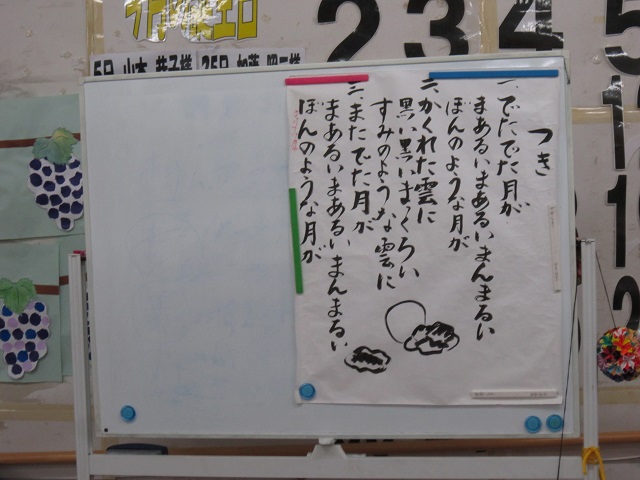 5日 山本 恭子様 25日 加藤 昭二様
2
3
4
5
つき
一、でたでた月が
まあるいまあるいまんまるい
ぼんのような月が
二、かくれた雲に
黒い黒いまっくろい
すみのような雲に
三、またでた月が
まあるいまあるいまんまるい
ぼんのような月が